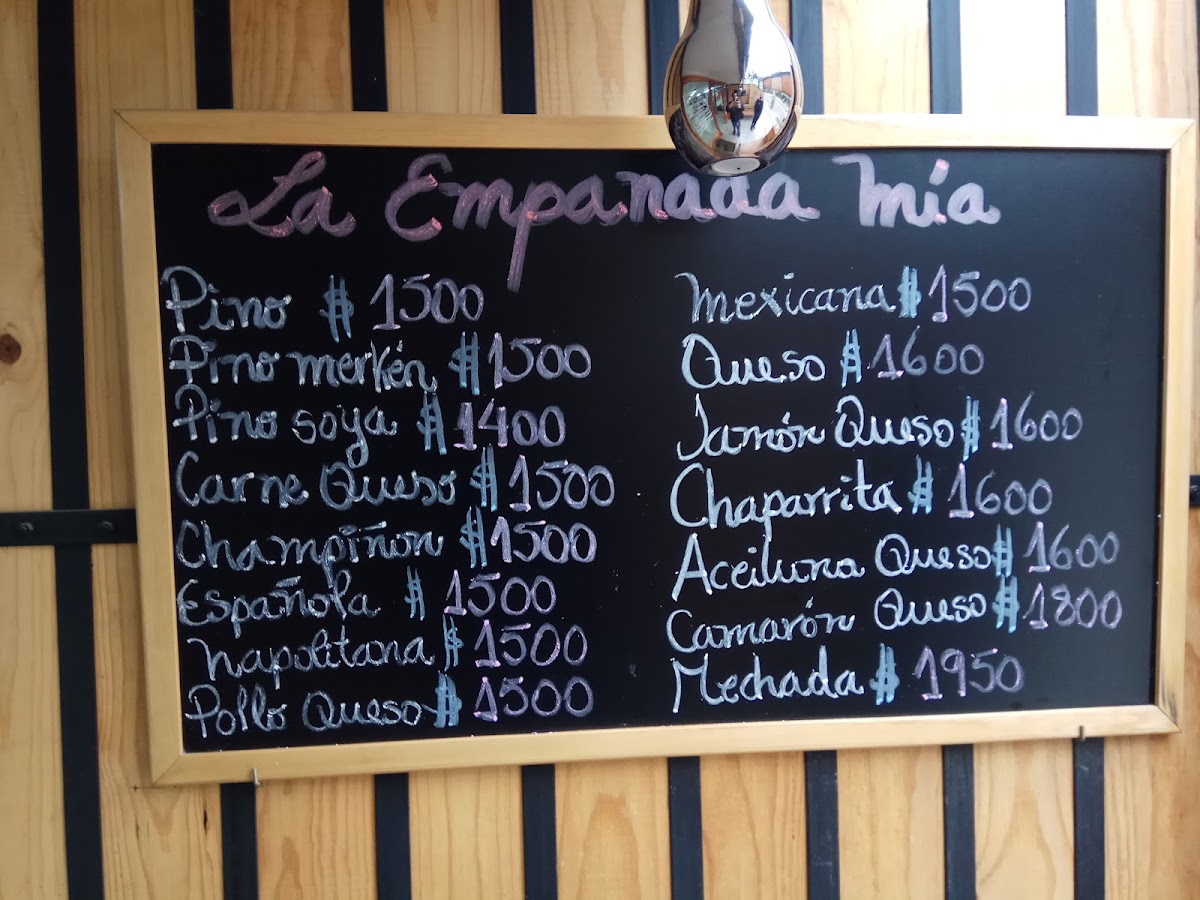 La Empanada Mía
Pino $ 1500
Pino merkén $ 1500
Pino soya $ 1400
Carne Queso $ 1500
Champiñon $ 1500
Española $ 1500
Napolitana $ 1500
Pollo Queso $ 1500
Mexicana $ 1500
Queso $ 1600
Jamón Queso $ 1600
Chaparrita $ 1600
Aceituna Queso $ 1600
Camarón Queso $ 1800
Mechada $ 1950